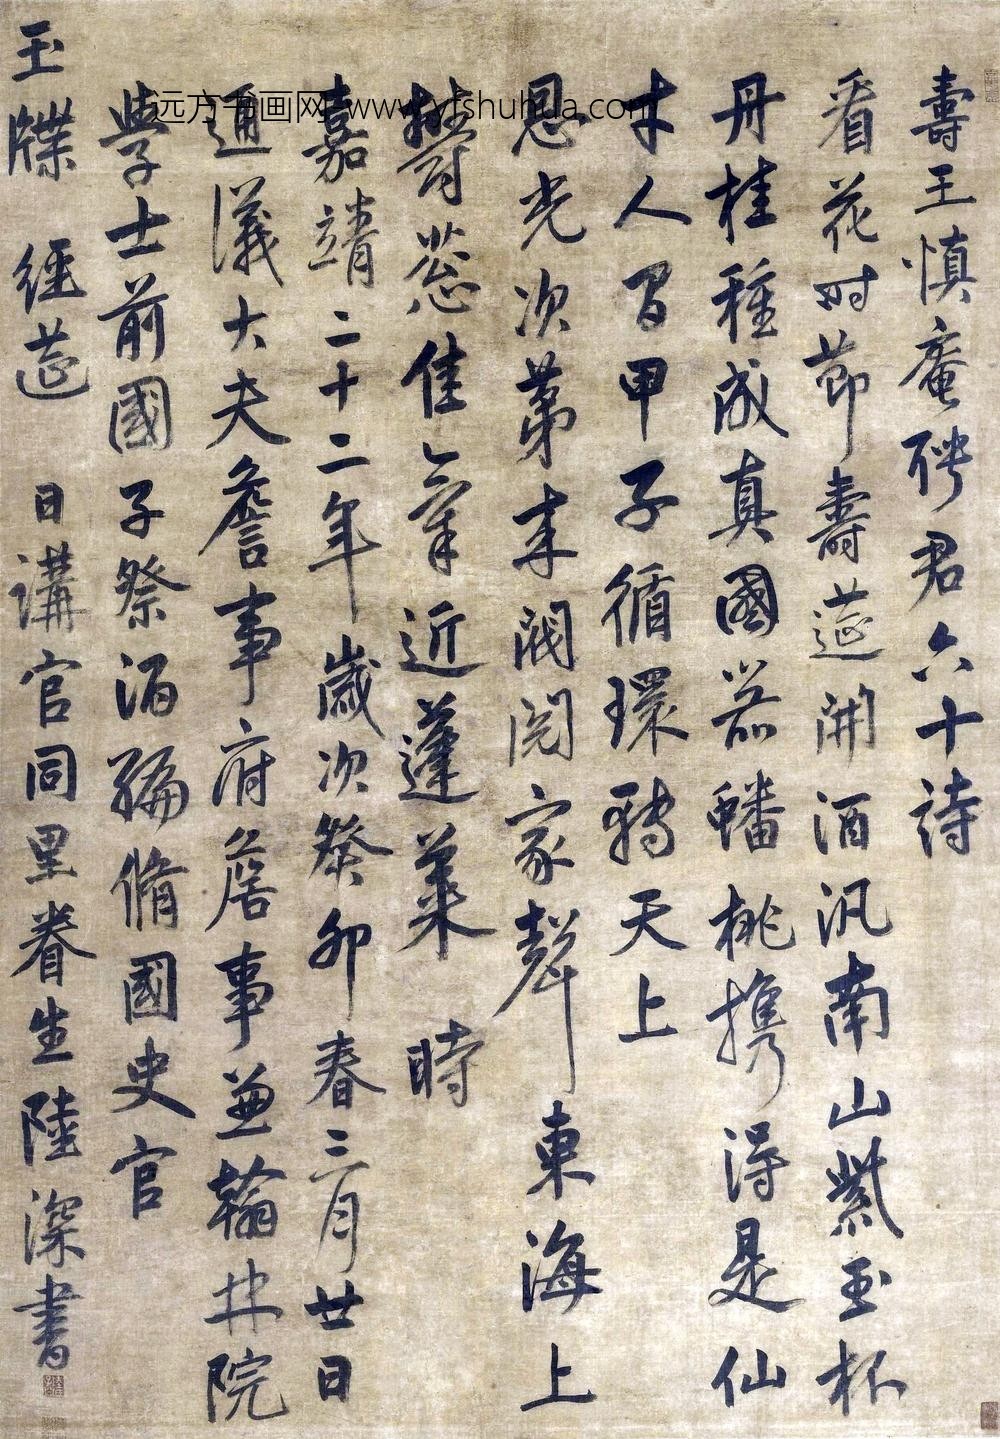 壽王慎庵聘君六十詩
看花时節壽莚開酒汎南山紫玉杯
丹桂種成真國器蟠桃擕得是仙
才人间甲子循環轉天上
恩光次第来閥閱家聲東海上
欝葱佳氣近蓬萊 時
嘉靖二十二年歲次癸卯春三月廿日
通議大夫詹事府詹事兼翰林院
學士前國子祭酒編脩國史官
玉牒 經莚 日講官同里眷生陸深書
远方书画网 www.yfshuhua.com